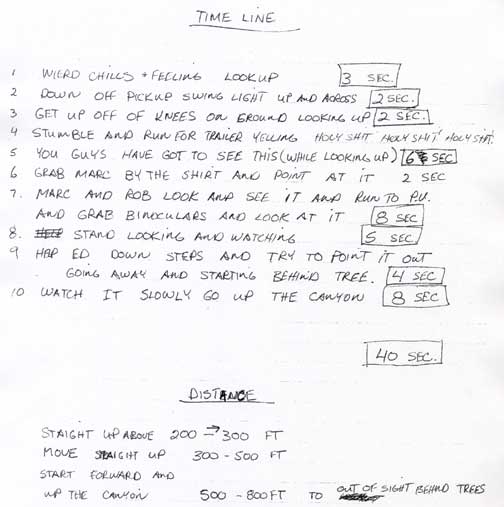 TIME LINE
1 WIERD CHILLS + FEELING LOOKUP 3 SEC.
2 DOWN OFF PICKUP SWING LIGHT UP AND ACROSS 2 SEC.
3 GET UP OFF OF KNEES ON GROUND LOOKING UP 2 SEC.
4 STUMBLE AND RUN FOR TRAILER YELLING HOLY SHIT HOLY SHIT! HOLY SHIT.
5 YOU GUYS HAVE GOT TO SEE THIS (WHILE LOOKING UP) 6 SEC
6 GRAB MARC BY THE SHIRT AND POINT AT IT 2 SEC
7. MARC AND ROB LOOK AND SEE IT AND RUN TO P.U.
AND GRAB BINOCULARS AND LOOK AT IT 8 SEC
8. STAND LOOKING AND WATCHING 5 SEC.
9 HELP ED DOWN STEPS AND TRY TO POINT IT OUT
GOING AWAY AND STARTING BEHIND TREE. 4 SEC.
10 WATCH IT SLOWLY GO UP THE CANYON 8 SEC
40 SEC.
DISTANCE
STAIGHT UP ABOVE 200 → 300 FT
MOVE STAIGHT UP 300 - 500 FT
START FORWARD AND
UP THE CANYON 500 - 800 FT TO OUT OF SIGHT BEHIND TREES